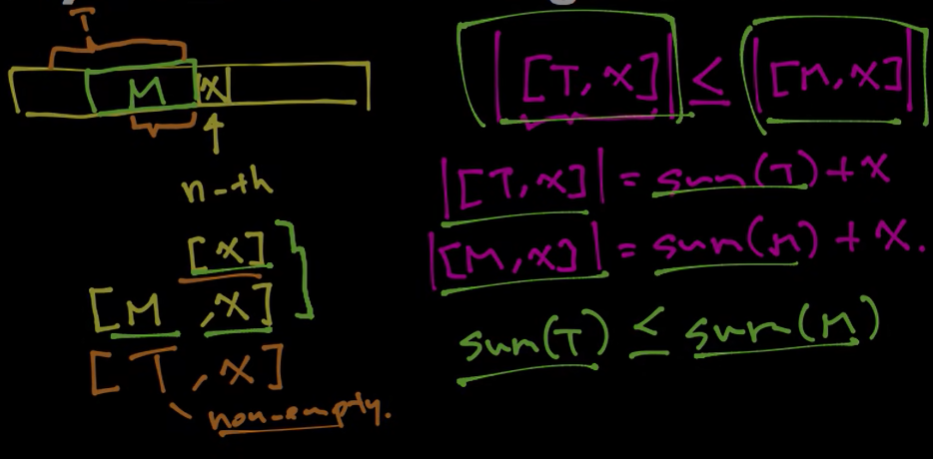 T
M X
n-th
[X]
[M, X]
[T, X]
non-empty.
|[T, X]| ≤ |[M, X]|
|[T, X]| = sum(T) + X
|[M, X]| = sum(M) + X.
sum(T) ≤ sum(M)